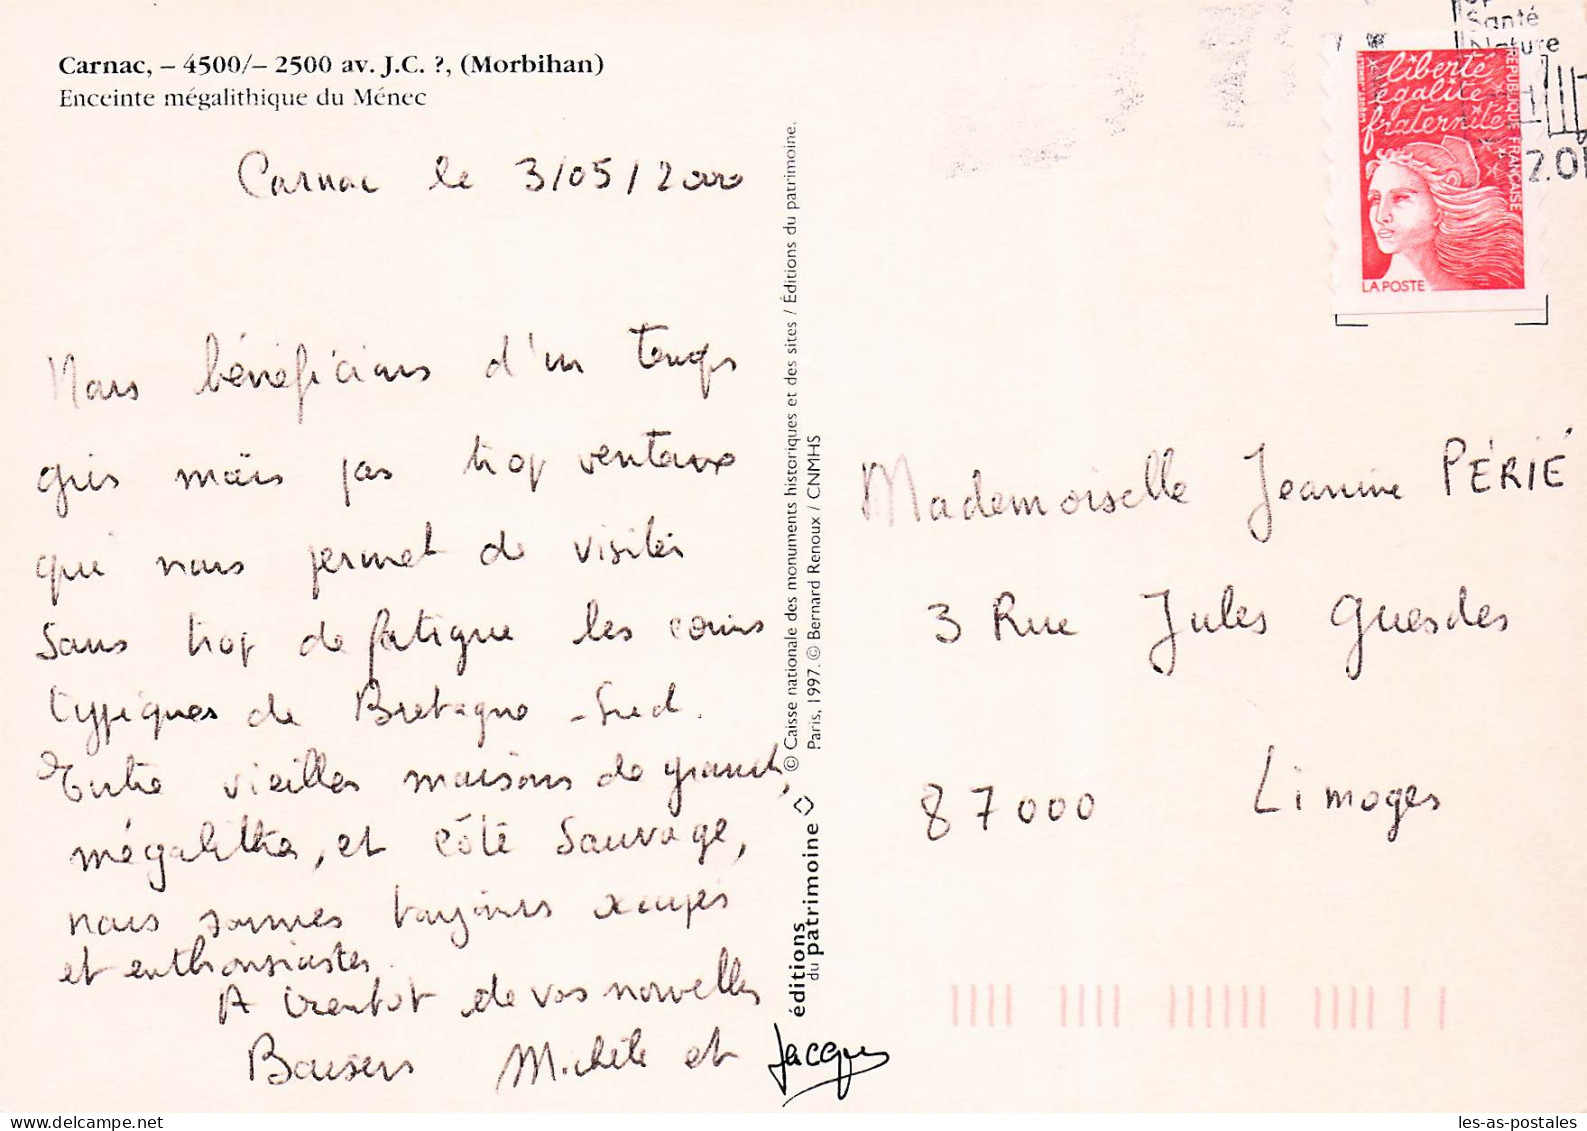 Carnac, – 4500/– 2500 av. J.C. ?, (Morbihan)
Enceinte mégalithique du Ménec
Carnac le 3/05/2000
Nous bénéficions d'un temps
gris mais pas trop venteux
qui nous permet de visiter
sans trop de fatigue les coins
typiques de Bretagne-Sud.
Entre vieilles maisons de granit,
mégalithes, et côte Sauvage,
nous sommes toujours occupés
et enthousiastes.
A bientôt de vos nouvelles
Baisers Michèle et Jacques
© Caisse nationale des monuments historiques et des sites / Éditions du patrimoine.
Paris, 1997. © Bernard Renoux / CNMHS
éditions
du patrimoine
Santé
Nature
liberté
égalité
fraternité
RÉPUBLIQUE FRANÇAISE
LA POSTE
Mademoiselle Jeanine PÉRIÉ
3 Rue Jules Guesdes
87000 Limoges
les-as-postales